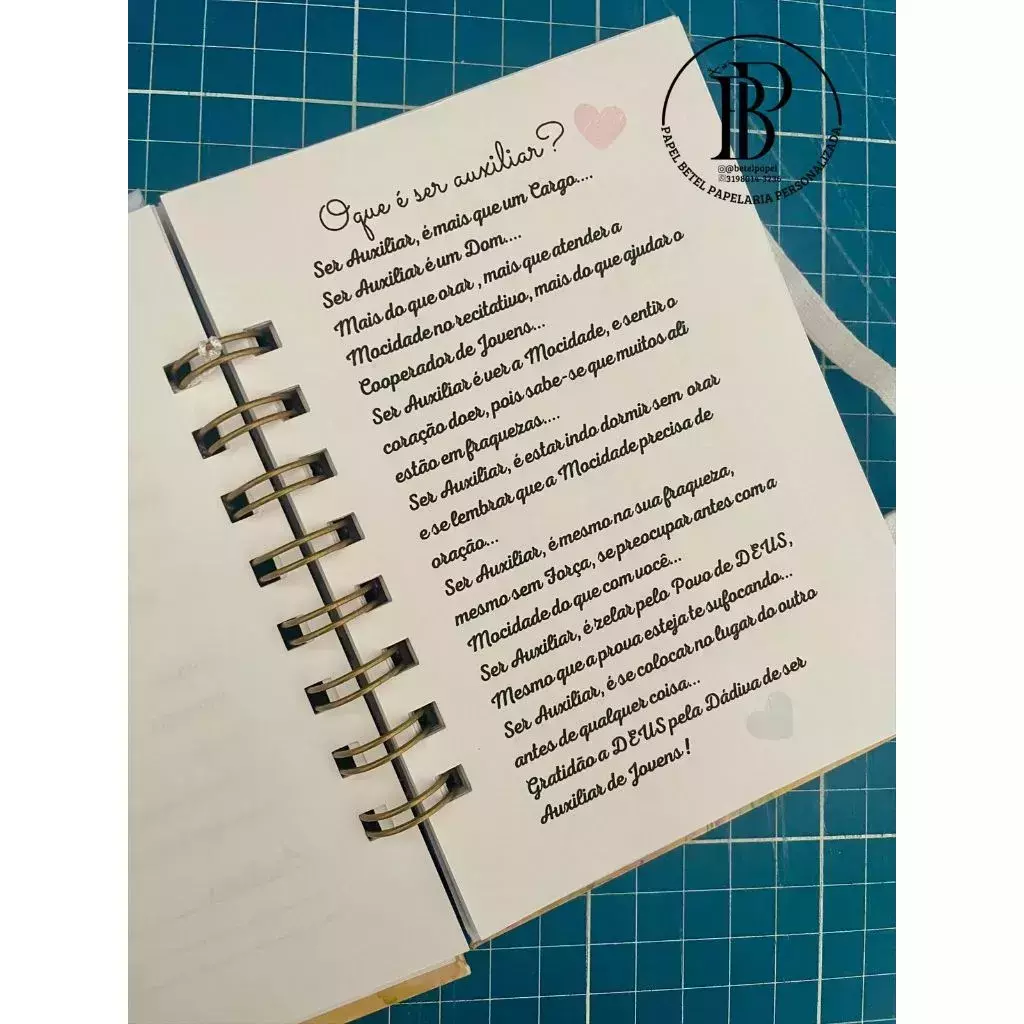 O que é ser auxiliar?
Ser Auxiliar, é mais que um Cargo....
Ser Auxiliar é um Dom....
Mais do que orar , mais que atender a
Mocidade no recitativo, mais do que ajudar o
Cooperador de Jovens...
Ser Auxiliar é ver a Mocidade, e sentir o
coração doer, pois sabe-se que muitos ali
estão em fraquezas....
Ser Auxiliar, é estar indo dormir sem orar
e se lembrar que a Mocidade precisa de
oração...
Ser Auxiliar, é mesmo na sua fraqueza,
mesmo sem Força, se preocupar antes com a
Mocidade do que com você...
Ser Auxiliar, é zelar pelo Povo de DEUS,
Mesmo que a prova esteja te sufocando...
Ser Auxiliar, é se colocar no lugar do outro
antes de qualquer coisa...
Gratidão a DEUS pela Dádiva de ser
Auxiliar de Jovens!
PB
@betelpapel
PAPEL BETEL PAPELARIA PERSONALIZADA